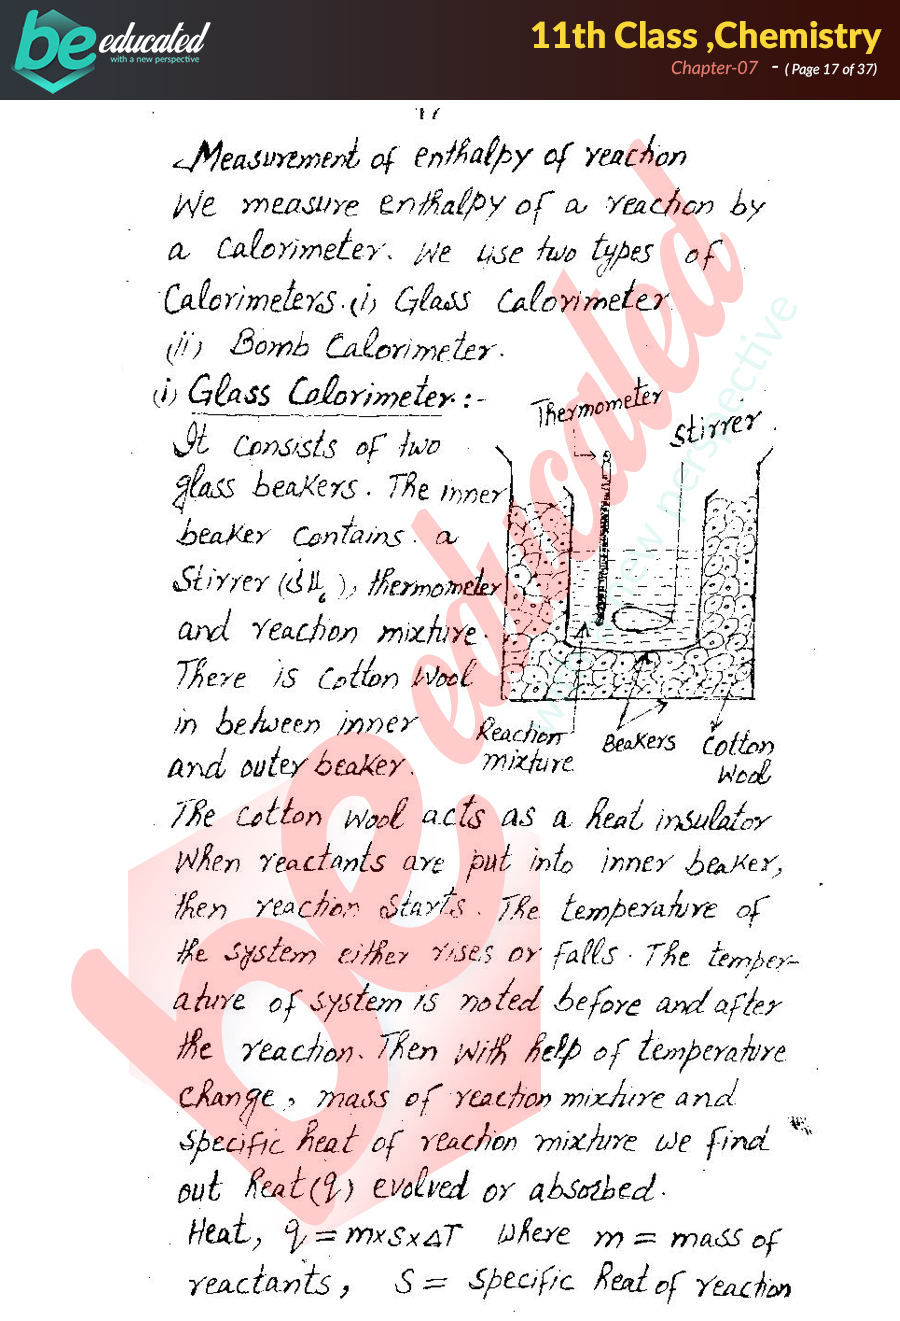 be educated
with a new perspective
11th Class ,Chemistry
Chapter-07 - ( Page 17 of 37)
17
Measurement of enthalpy of reaction
We measure enthalpy of a reaction by
a Calorimeter. We use two types of
Calorimeters. (i) Glass Calorimeter
(ii) Bomb Calorimeter.
(i) Glass Calorimeter :-
It consists of two
glass beakers. The inner
beaker contains a
Stirrer ( ), thermometer
and reaction mixture.
There is Cotton Wool
in between inner
and outer beaker.
Thermometer
stirrer
Reaction
mixture
Beakers
Cotton
Wool
The Cotton Wool acts as a heat insulator
When reactants are put into inner beaker,
then reaction starts. The temperature of
the system either rises or falls. The temper-
ature of system is noted before and after
the reaction. Then with help of temperature
change, mass of reaction mixture and
specific heat of reaction mixture we find
out heat (q) evolved or absorbed.
Heat, q = m×s×ΔT Where m = mass of
reactants, S = specific heat of reaction
be educated
with a new perspective